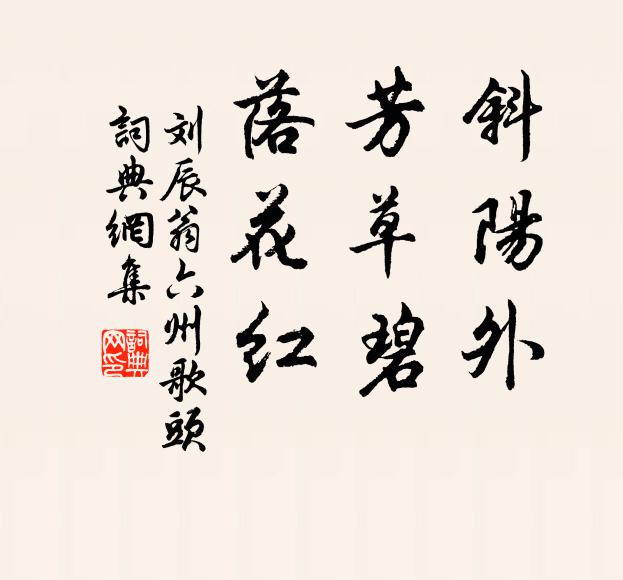 斜陽外
芳草碧
落花红
刘辰翁六州歌頭
詞典網集
詞典
网印